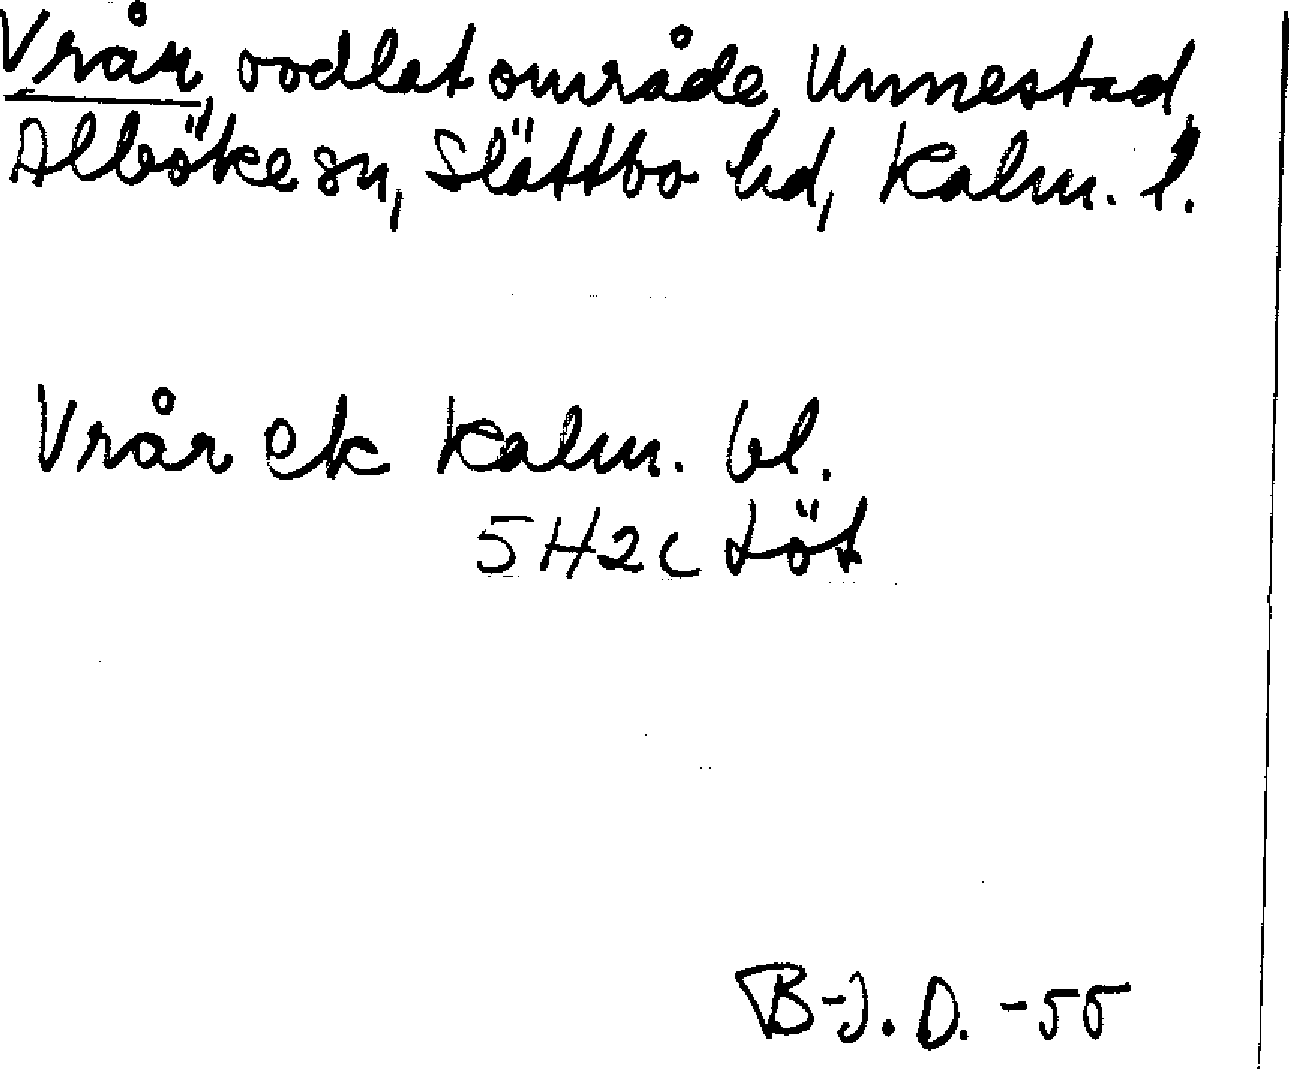 Vrån, oodlat område, Unnestad,
Alböke sn, Slättbo hd, Kalm. l.
Vrår ek Kalm. bl.
5H2c Löt
B-J. D. -55